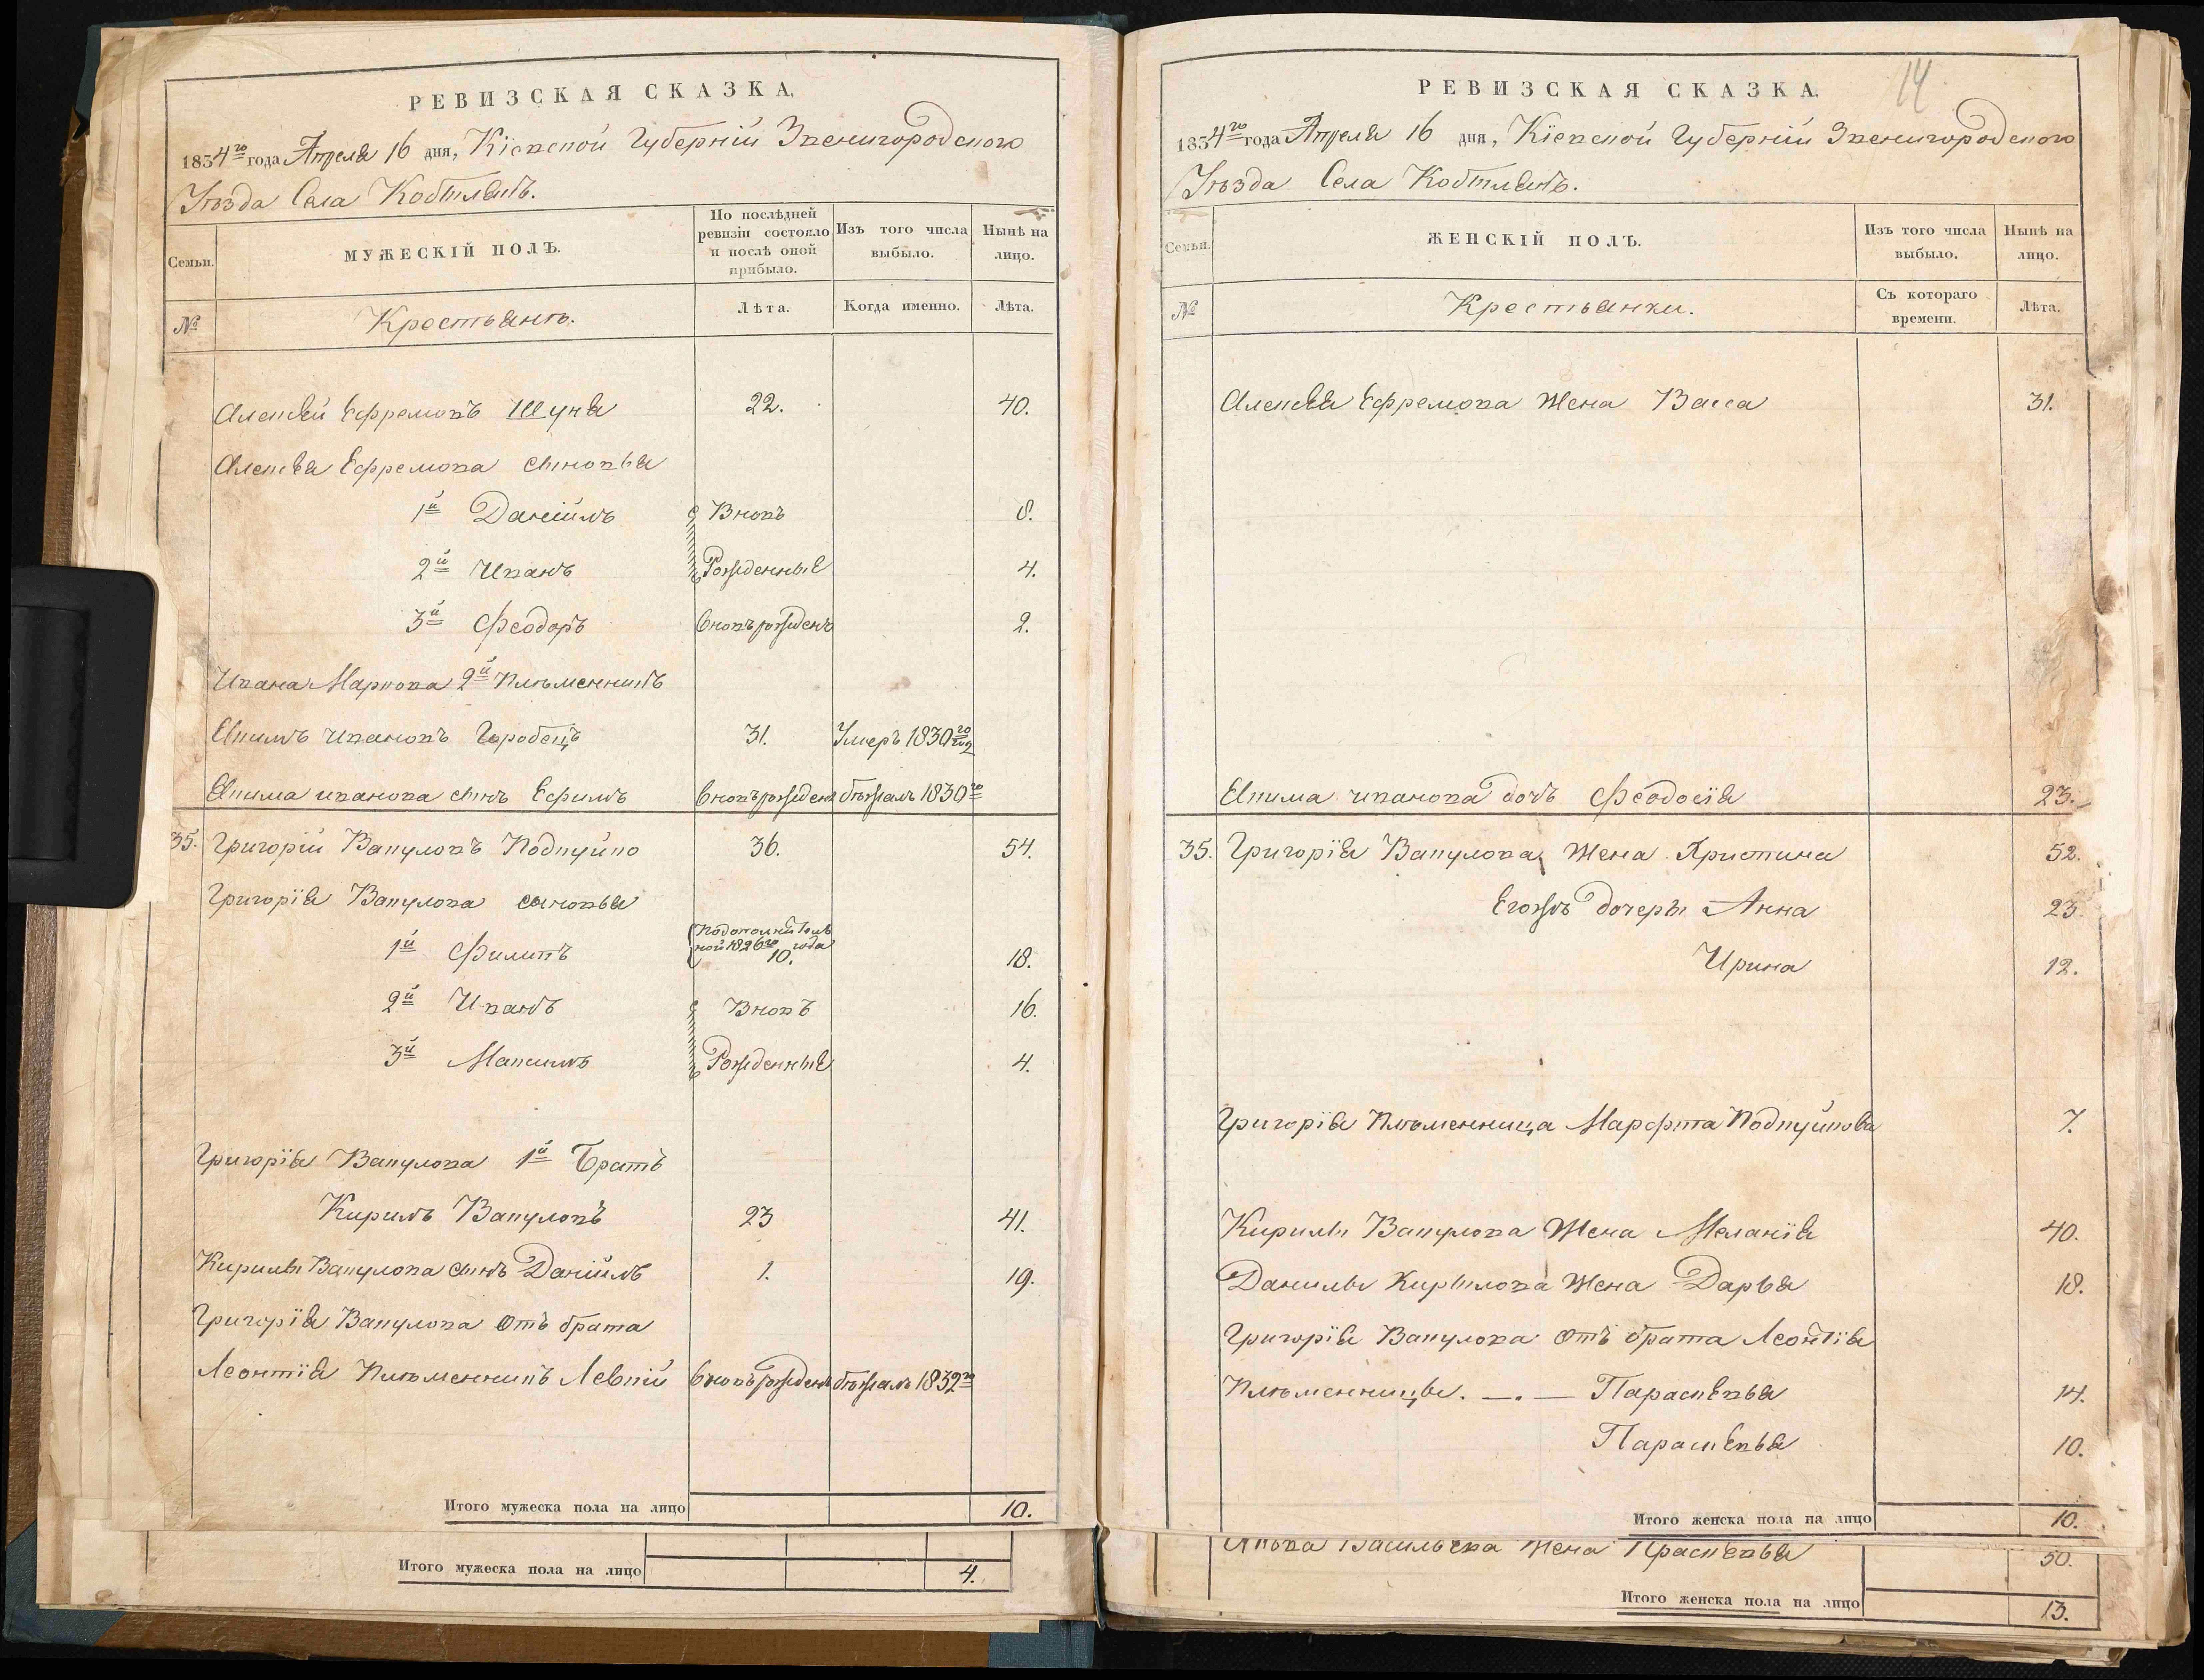 РЕВИЗСКАЯ СКАЗКА.
1834го года Апреля 16 дня, Кіевской Губерніи Звенигородского
Уѣзда Села Кобтлякъ.
Семьи.
МУЖЕСКІЙ ПОЛЪ.
По послѣдней ревизіи состояло и послѣ оной прибыло.
Изъ того числа выбыло.
Нынѣ на лицо.
№
Крестьянъ.
Лѣта.
Когда именно.
Лѣта.
Алексѣй Ефремовъ Шуня 22. 40.
Алексѣя Ефремова сыновья
1й Даніилъ Вновь 8.
2й Иванъ Рожденные 4.
3й Феодоръ вновь рожденъ 2.
Ивана Маркова 2й племенникъ
Якимъ Ивановъ Горобецъ 31. Умеръ 1830го года
Якима Иванова сынъ Ефимъ вновь рожден бѣжалъ 1830го
35. Григорій Вакуловъ Подпуйко 36. 54.
Григорія Вакулова сыновья
1й Филипъ 18.
ной 1826го года
10.
2й Иванъ Вновь 16.
3й Максимъ Рожденные 4.
Григорія Вакулова 1й Братъ
Кирилъ Вакуловъ 23 41.
Кирилы Вакулова сынъ Даніилъ 1. 19.
Григорія Вакулова отъ брата
Леонтія племенникъ Левкій вновь рожденъ бѣжалъ 1832го
Итого мужеска пола на лицо 10.
Итого мужеска пола на лицо 4.
14
РЕВИЗСКАЯ СКАЗКА.
1834го года Апреля 16 дня, Кіевской Губерніи Звенигородского
Уѣзда Села Кобтлякъ.
Семьи.
ЖЕНСКІЙ ПОЛЪ.
Изъ того числа выбыло.
Нынѣ на лицо.
№
Крестьянки.
Съ котораго времени.
Лѣта.
Алексѣя Ефремова Жена Васса 31.
Якима Иванова дочь Феодосія 23.
35. Григорія Вакулова Жена Христина 52.
Егожъ дочеры Анна 23.
Ирина 12.
Григорія племенница Марфта Подпуйкова 7.
Кирилы Вакулова Жена Меланія 40.
Данилы Кирилова Жена Дарья 18.
Григорія Вакулова отъ брата Леонтія
Племенницы. —.— Параскевья 14.
Параскевья 10.
Итого женска пола на лицо 10.
Якова Васильева жена Праскевья 50.
Итого женска пола на лицо 13.